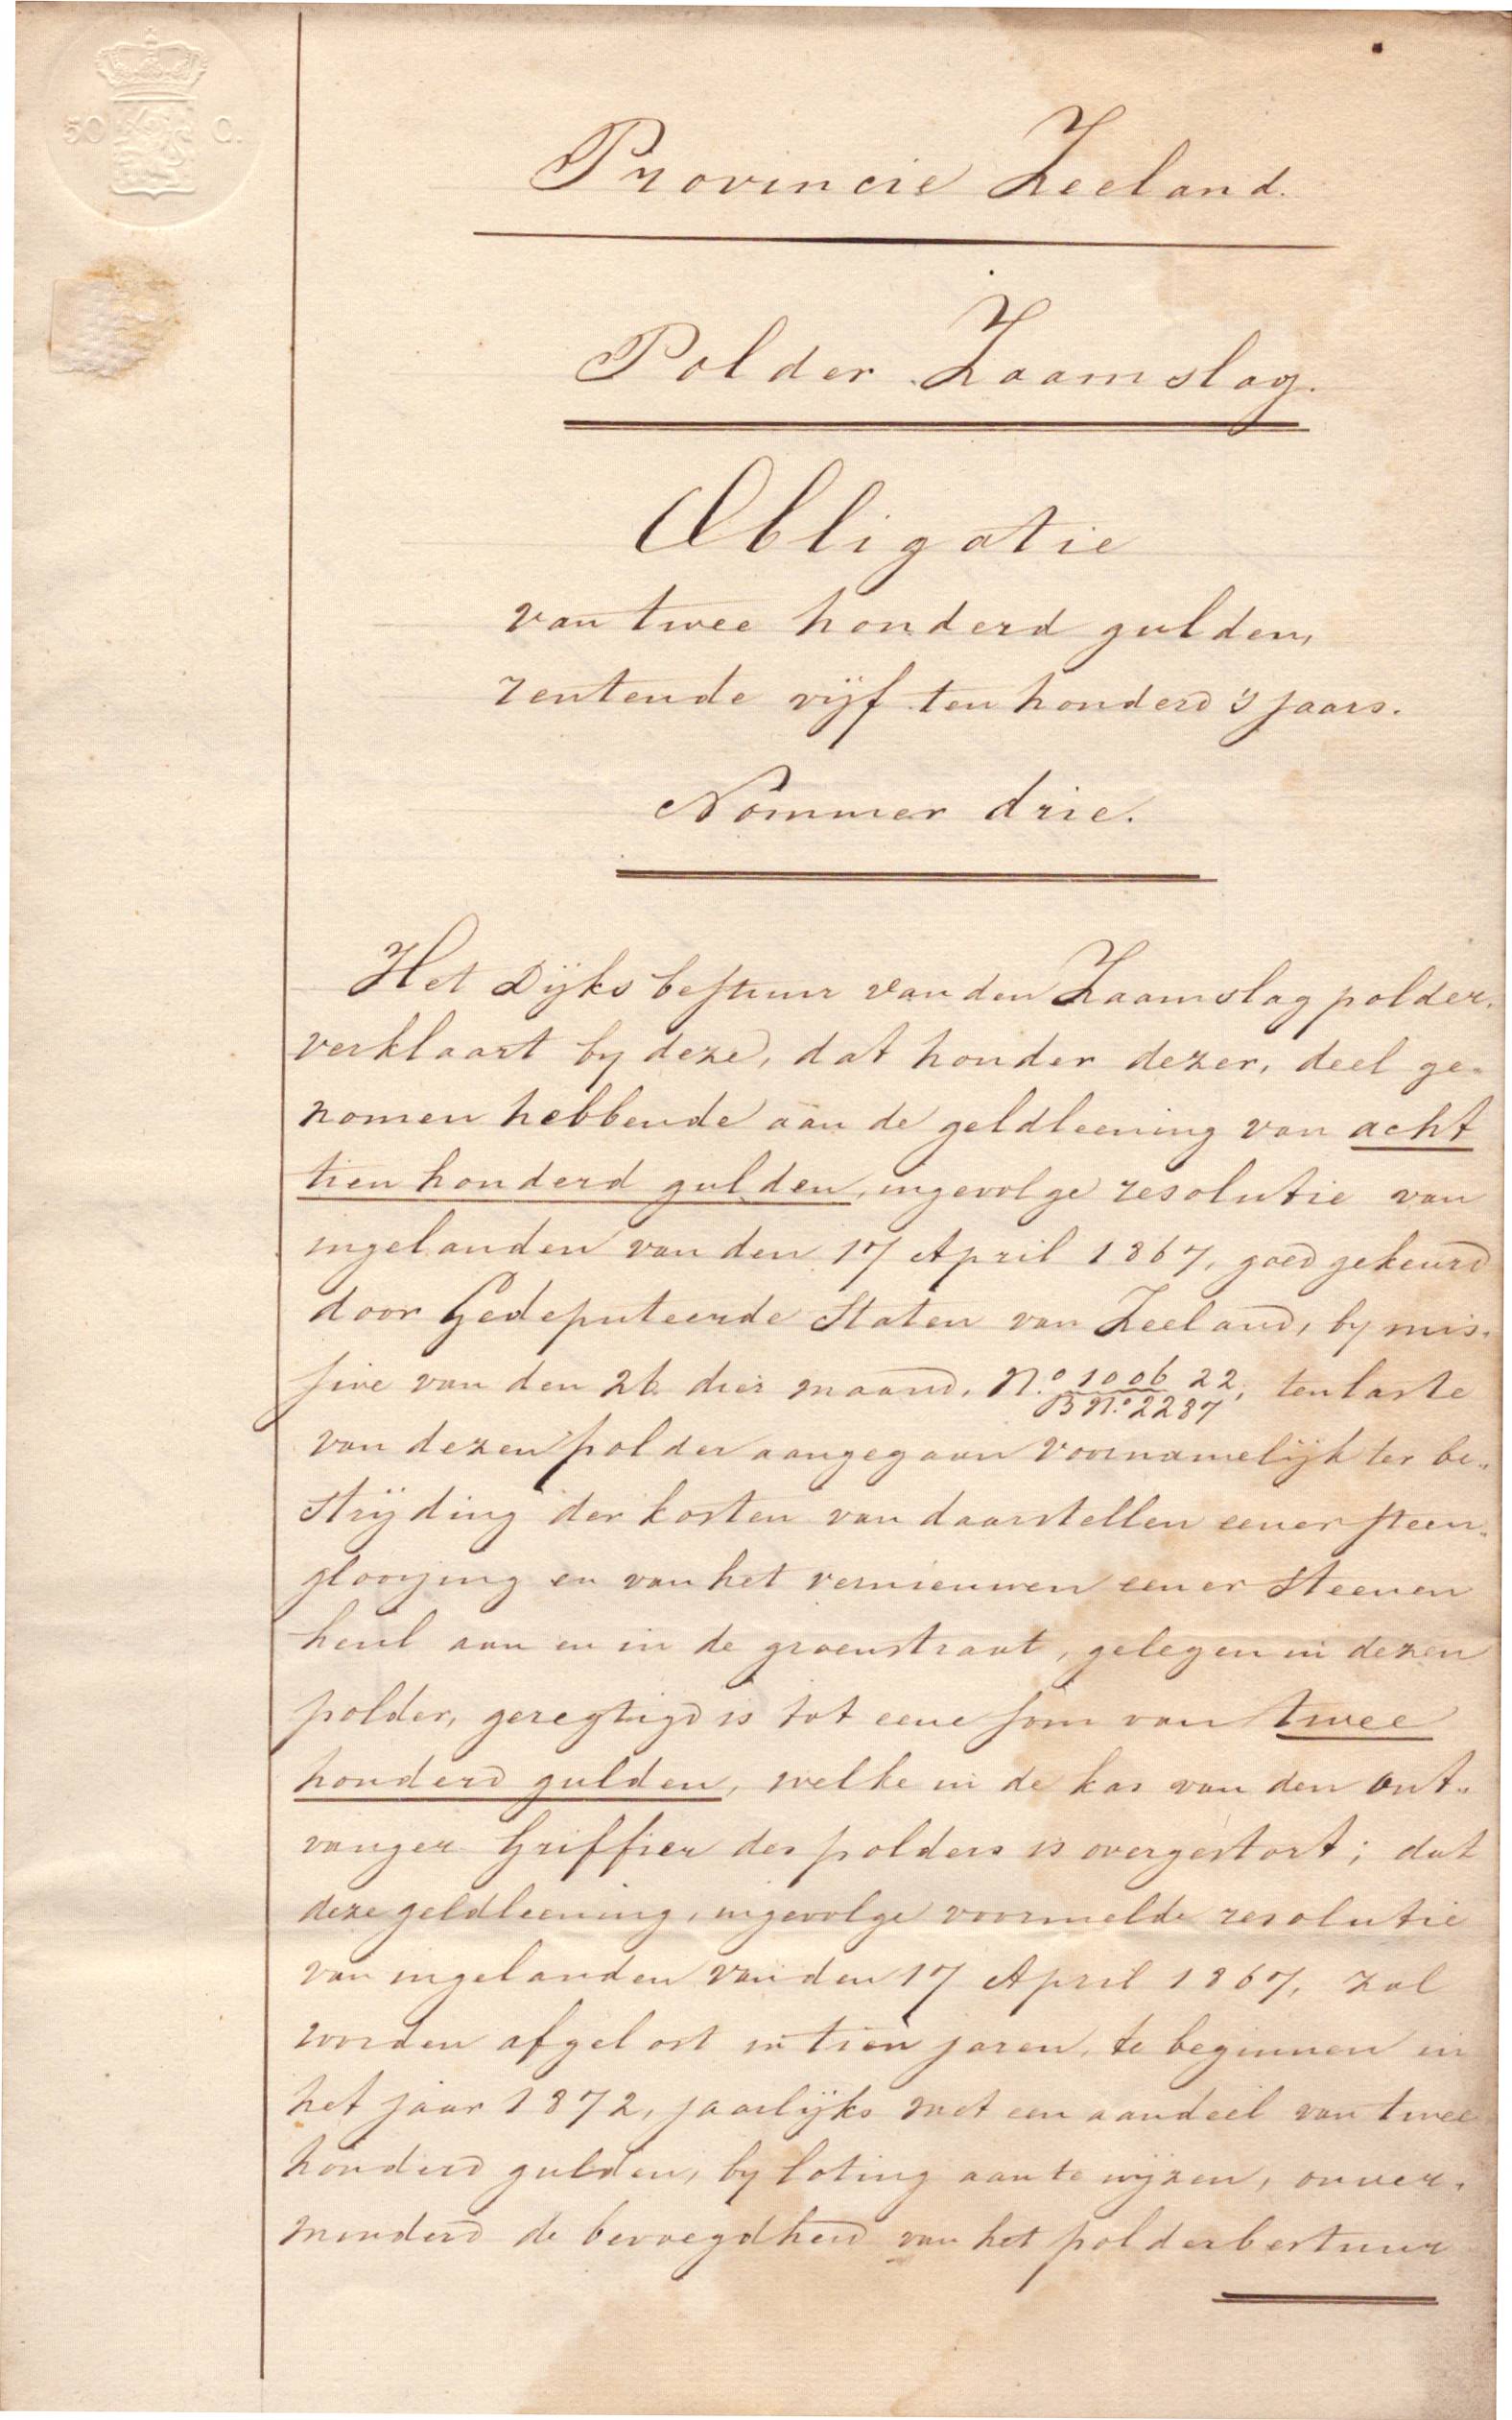 50 C.
Provincie Zeeland.
Polder Zaamslag.
Obligatie
van twee honderd gulden,
rentende vijf ten honderd 's jaars.
Nommer drie.
Het Dijksbestuur van den Zaamslagpolder.
verklaart by deze, dat houder dezer, deel ge-
nomen hebbende aan de geldleening van acht
tien honderd gulden, ingevolge resolutie van
ingelanden van den 17 April 1867, goedgekeurd
door Gedeputeerde Staten van Zeeland, by mis-
sive van den 26 dier maand, N.o 1006 22, ten laste
B N.o 2287
van dezen polder aangegaan voornamelijk ter be-
strijding der kosten van daarstellen eener steen-
glooijing en van het vernieuwen eener steenen
heul aan en in de groenstraat, gelegen in dezen
polder, geregtigd is tot eene som van twee
honderd gulden, welke in de kas van den ont-
vanger Griffier des polders is overgestort; dat
deze geldleening, ingevolge voormelde resolutie
van ingelanden van den 17 April 1867, zal
worden afgelost in tien jaren, te beginnen in
het jaar 1872, jaarlijks met een aandeel van twee
honderd gulden, by loting aan te wijzen, onver-
minderd de bevoegdheid van het polderbestuur